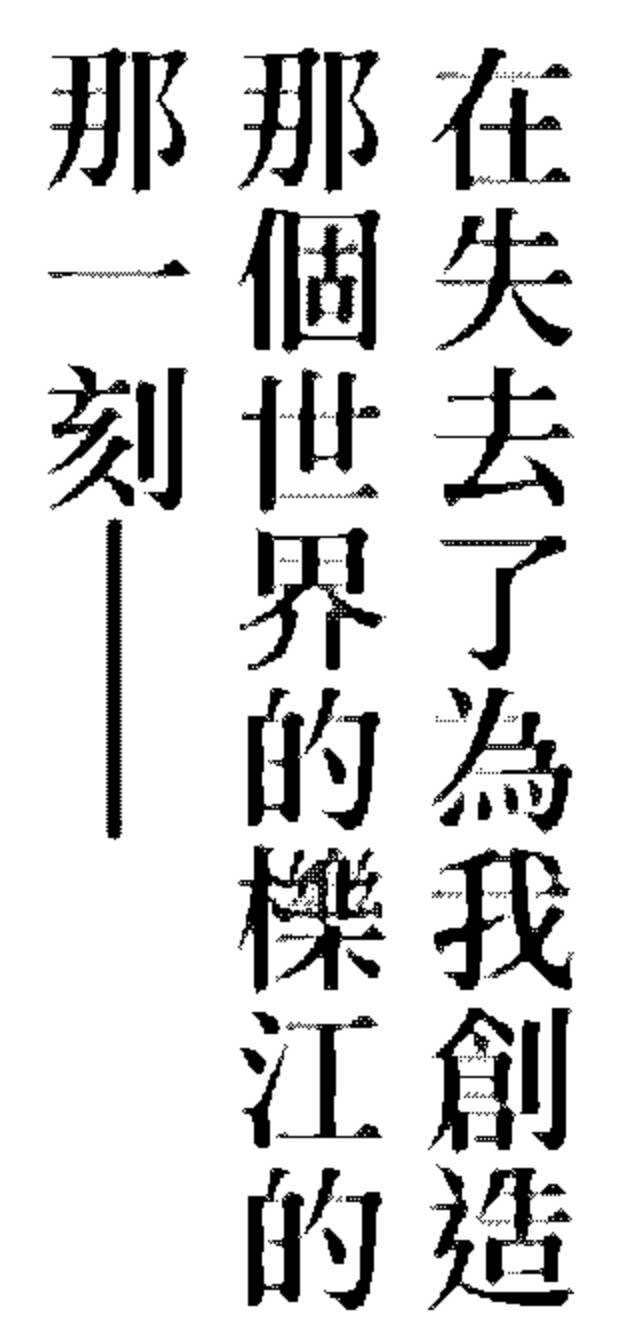 在失去了為我創造
那個世界的櫟江的
那一刻——